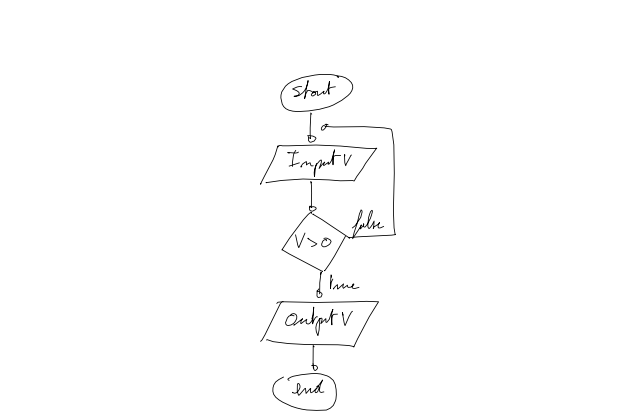 Start
Input V
false
V>0
true
Output V
end